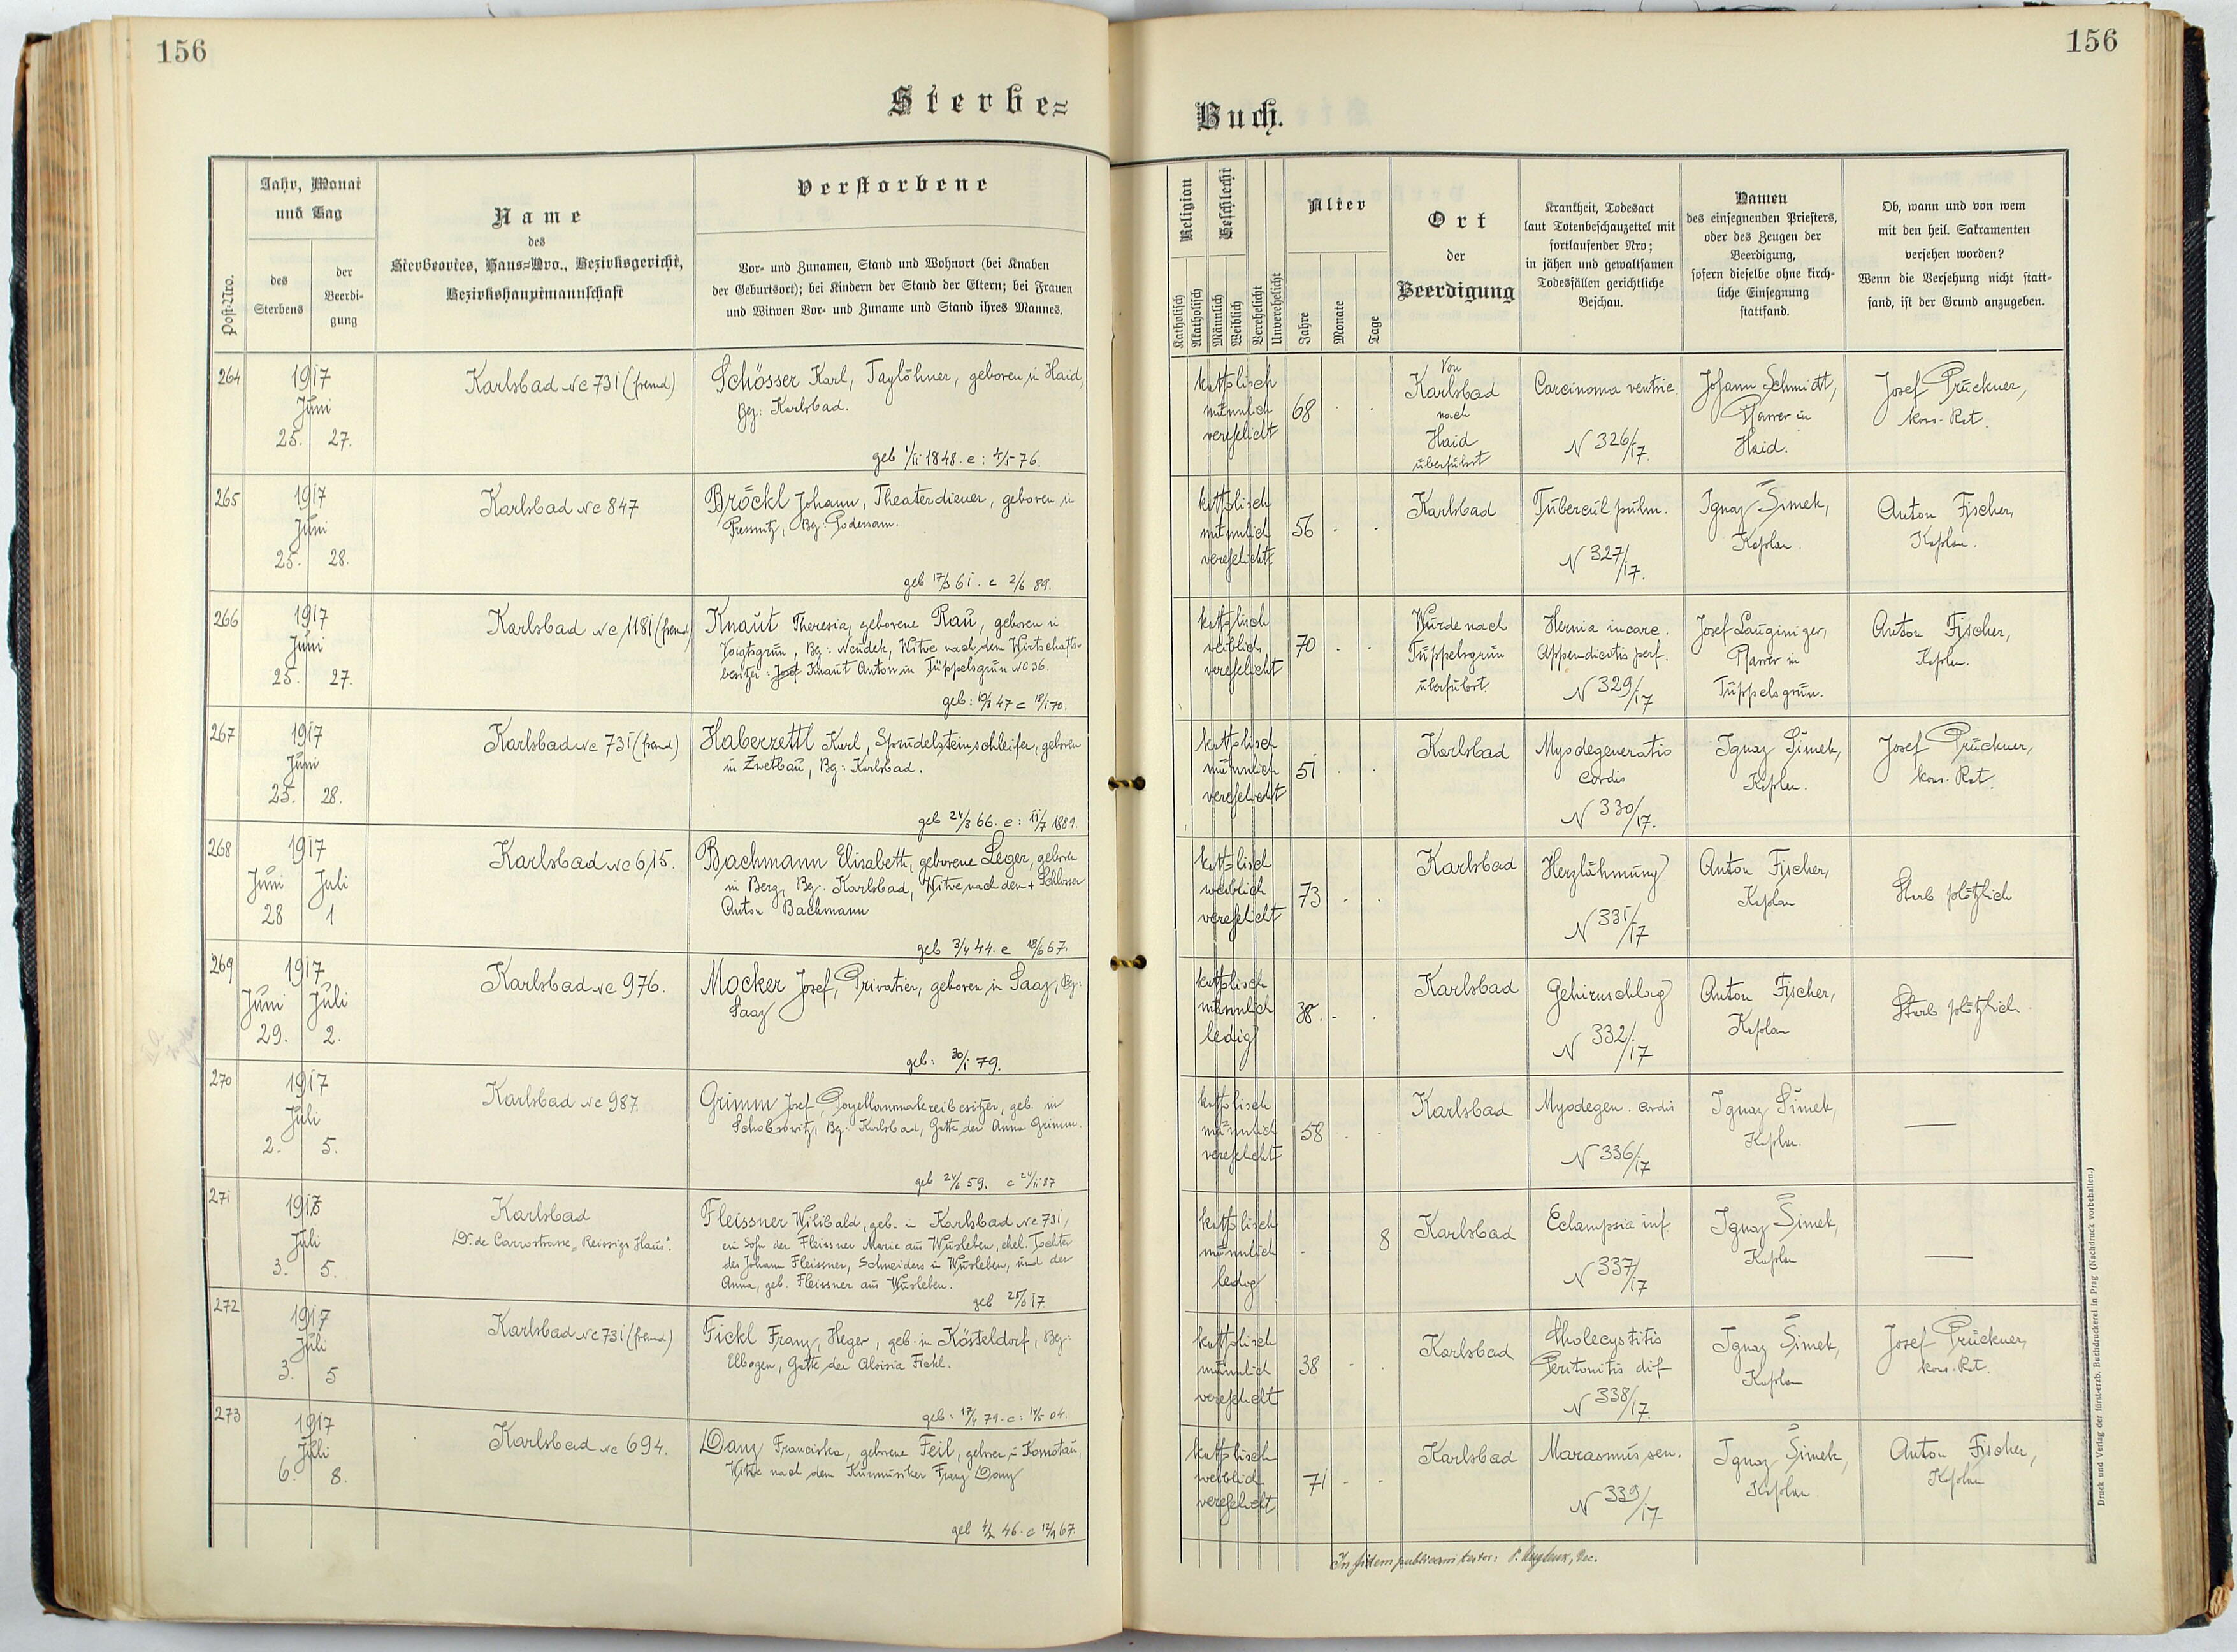 156
156
Sterbe=
Buch.
Post-Nro.
Jahr, Monat
und Tag
des
Sterbens
der
Beerdi-
gung
Name
des
Sterbeortes, Haus=Nro., Bezirksgericht,
Bezirkshauptmannschaft
Verstorbene
Vor- und Zunamen, Stand und Wohnort (bei Knaben
der Geburtsort); bei Kindern der Stand der Eltern; bei Frauen
und Witwen Vor- und Zuname und Stand ihres Mannes.
Religion
Katholisch
Akatholisch
Geschlecht
Männlich
Weiblich
Verehelicht
Unverehelicht
Alter
Jahre
Monate
Tage
Ort
der
Beerdigung
Krankheit, Todesart
laut Totenbeschauzettel mit
fortlaufender Nro;
in jähen und gewaltsamen
Todesfällen gerichtliche
Beschau.
Namen
des einsegnenden Priesters,
oder des Zeugen der
Beerdigung,
sofern dieselbe ohne kirch-
liche Einsegnung
stattfand.
Ob, wann und von wem
mit den heil. Sakramenten
versehen worden?
Wenn die Versehung nicht statt-
fand, ist der Grund anzugeben.
264
1917
Juni
25. 27.
Karlsbad Nc 731 (fremd)
Schösser Karl, Taglöhner, geboren in Haid,
Bez: Karlsbad.
geb 1/11 1848. c: 4/5 76.
katholisch
männlich
verehelicht
68
Von
Karlsbad
nach
Haid
überführt
Carcinoma ventric.
N 326/17.
Johann Schmidt,
Pfarrer in
Haid.
Josef Prückner,
kons. Rat.
265
1917
Juni
25. 28.
Karlsbad Nc 847
Bröckl Johann, Theaterdiener, geboren in
Pressnitz, Bez: Podersam.
geb 17/3 61. c 2/6 89.
katholisch
männlich
verehelicht.
56
Karlsbad
Tubercul. pulm.
N 327/17.
Ignaz Šimek,
Kaplan.
Anton Fischer,
Kaplan.
266
1917
Juni
25. 27.
Karlsbad Nc 1181 (fremd)
Knaut Theresia, geborene Rau, geboren in
Voigtsgrün, Bez: Neudek, Witwe nach dem Wirtschafts-
besitzer Josef Knaut Anton in Tüppelsgrün No 36.
geb: 10/3 47 c 18/1 70.
katholisch
weiblich
verehelicht
70
Wurde nach
Tüppelsgrün
überführt.
Hernia incarc.
Appendicitis perf.
N 329/17
Josef Lauginiger,
Pfarrer in
Tüppelsgrün.
Anton Fischer,
Kaplan.
267
1917
Juni
25. 28.
Karlsbad Nc 731 (fremd)
Haberzettl Karl, Sprudelsteinschleifer, geboren
in Zwetbau, Bez: Karlsbad.
geb 24/3 66. c: 11/7 1889.
katholisch
männlich
verehelicht
51
Karlsbad
Myodegeneratio
cordis
N 330/17.
Ignaz Šimek,
Kaplan.
Josef Prückner,
kons. Rat.
268
1917
Juni Juli
28 1
Karlsbad Nc 615.
Bachmann Elisabeth, geborene Leger, geboren
in Berg, Bez. Karlsbad, Witwe nach dem + Schlosser
Anton Bachmann
geb 3/4 44. c 18/6 67.
katholisch
weiblich
verehelicht
73
Karlsbad
Herzlähmung
N 331/17
Anton Fischer,
Kaplan
Starb plötzlich
269
1917
Juni Juli
29. 2.
Karlsbad Nc 976.
Mocker Josef, Privatier, geboren in Saaz, Bez:
Saaz
geb: 30/1 79.
katholisch
männlich
ledig
38.
Karlsbad
Gehirnschlag
N 332/17
Anton Fischer,
Kaplan
Starb plötzlich.
270
1917
Juli
2. 5.
Karlsbad Nc 987.
Grimm Josef, Porzellanmalereibesitzer, geb. in
Schobrowitz, Bez: Karlsbad, Gatte der Anna Grimm.
geb 24/6 59. c 24/11 87
katholisch
männlich
verehelicht
58
Karlsbad
Myodegen. cordis
N 336/17
Ignaz Šimek,
Kaplan.
—
271
1917
Juli
3. 5.
Karlsbad
Dr. de Carrostrasse „Reissigs Haus".
Fleissner Wilibald, geb. in Karlsbad Nc 731,
ein Sohn der Fleissner Marie aus Wusleben, ehel. Tochter
des Johann Fleissner, Schneiders in Wusleben, und der
Anna, geb. Fleissner aus Wusleben.
geb 25/6 17.
katholisch
männlich
ledig
8
Karlsbad
Eclampsia inf.
N 337/17
Ignaz Šimek,
Kaplan
—
272
1917
Juli
3. 5
Karlsbad Nc 731 (fremd)
Fickl Franz, Heger, geb. in Kösteldorf, Bez:
Elbogen, Gatte der Aloisia Fickl.
geb: 17/4 79. c: 14/5 04.
katholisch
männlich
verehelicht
38
Karlsbad
Cholecystitis
Peritonitis dif
N 338/17.
Ignaz Šimek,
Kaplan
Josef Prückner,
kons. Rat.
273
1917
Juli
6. 8.
Karlsbad Nc 694.
Danz Franciska, geborene Feil, geboren in Komotau,
Witwe nach dem Kurmusiker Franz Danz
geb 4/2 46. c 12/9 67.
katholisch
weiblich
verehelicht
71
Karlsbad
Marasmus sen.
N 339/17
Ignaz Šimek,
Kaplan
Anton Fischer,
Kaplan
In fidem publicam testor:
Druck und Verlag der fürst-erzb. Buchdruckerei in Prag (Nachdruck vorbehalten.)